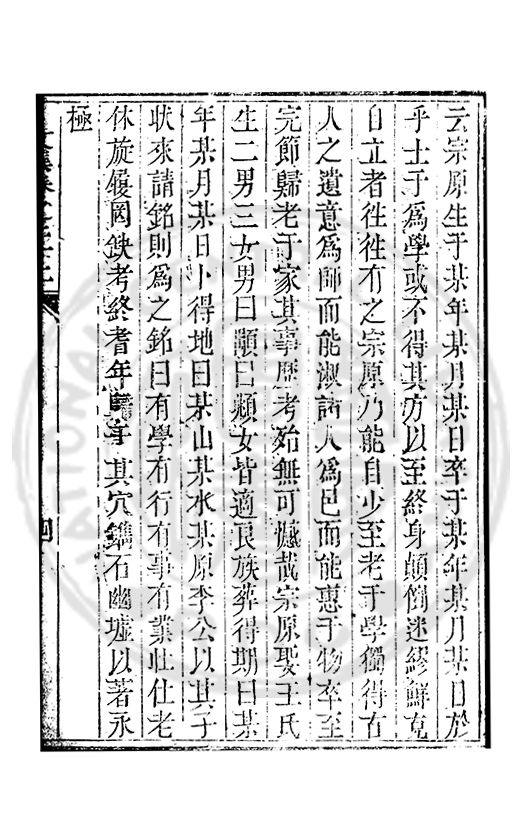 云宗原生于某年某月某日卒于某年某月某日於
乎士于為學或不得其方以至終身顛倒迷繆鮮克
自立者徃徃有之宗原乃能自少至老于學獨得古
人之遺意為師而能淑諸人為邑而能惠于物卒至
完節歸老于家其事歷考殆無可憾哉宗原娶王氏
生二男三女男曰顒曰頮女皆適良族葬得期曰某
年某月某日卜得地曰某山某水某原李公以其子
狀來請銘則為之銘曰有學有行有事有業壯仕老
休旋履罔缺考終耆年 其穴鐫石幽墟以著永
極
四